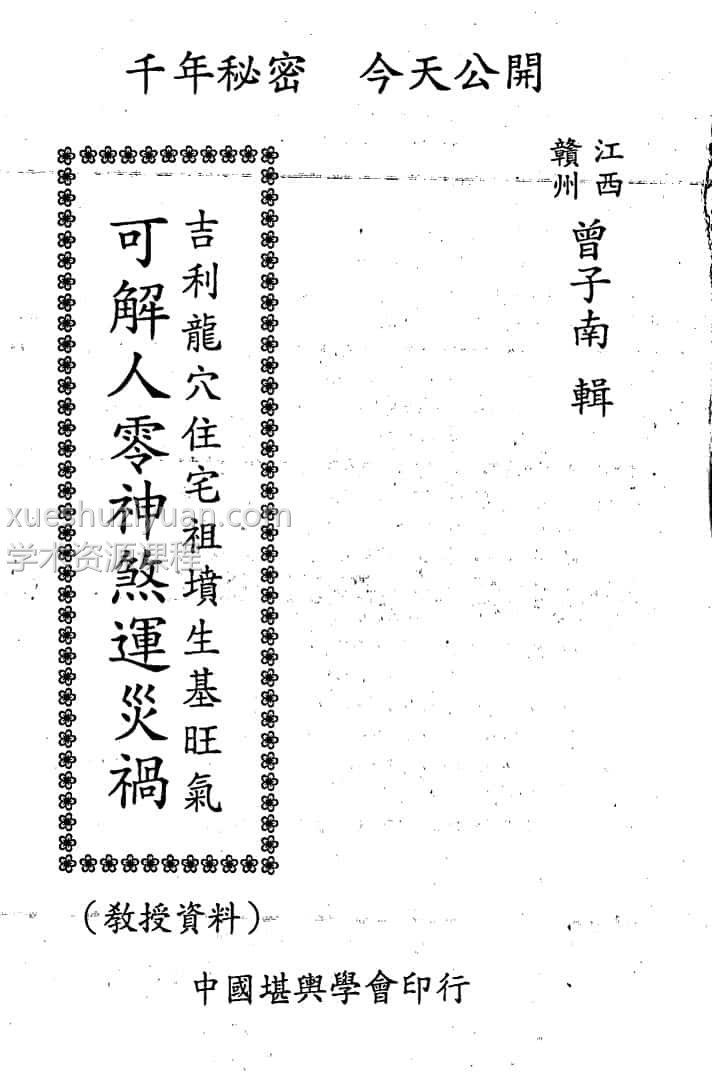 千年秘密　今天公開
江西
贛州
曾子南 輯
吉利龍穴住宅祖墳生基旺氣
可解人零神煞運災禍
（教授資料）
中國堪輿學會印行
xueshuziyuan.com
学术资源课程